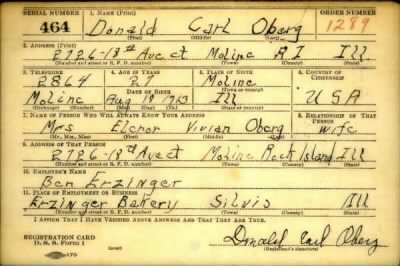 SERIAL NUMBER 1. NAME (Print) ORDER NUMBER
464 Donald Carl Oberg 1289
(First) (Middle) (Last)
2. ADDRESS (Print)
2726-18th Ave ct Moline R I Ill.
(Number and street or R. F. D. number) (Town) (County) (State)
3. TELEPHONE 4. AGE IN YEARS 5. PLACE OF BIRTH 6. COUNTRY OF CITIZENSHIP
2864 27 Moline
DATE OF BIRTH (Town or county)
Moline Aug 1913 Ill U S A
(Exchange) (Number) (Mo.) (Day) (Yr.) (State or country)
7. NAME OF PERSON WHO WILL ALWAYS KNOW YOUR ADDRESS 8. RELATIONSHIP OF THAT PERSON
Mrs Elenor Vivian Oberg wife
(Mr., Mrs., Miss) (First) (Middle) (Last)
9. ADDRESS OF THAT PERSON
2726-18th Ave ct Moline Rock Island Ill
(Number and street or R. F. D. number) (Town) (County) (State)
10. EMPLOYER'S NAME
Ben Erzinger
11. PLACE OF EMPLOYMENT OR BUSINESS
Erzinger Bakery Silvis Ill
(Number and street or R. F. D. number) (Town) (County) (State)
I AFFIRM THAT I HAVE VERIFIED ABOVE ANSWERS AND THAT THEY ARE TRUE.
REGISTRATION CARD
D. S. S. Form 1 Donald Carl Oberg
(Registrant's signature)